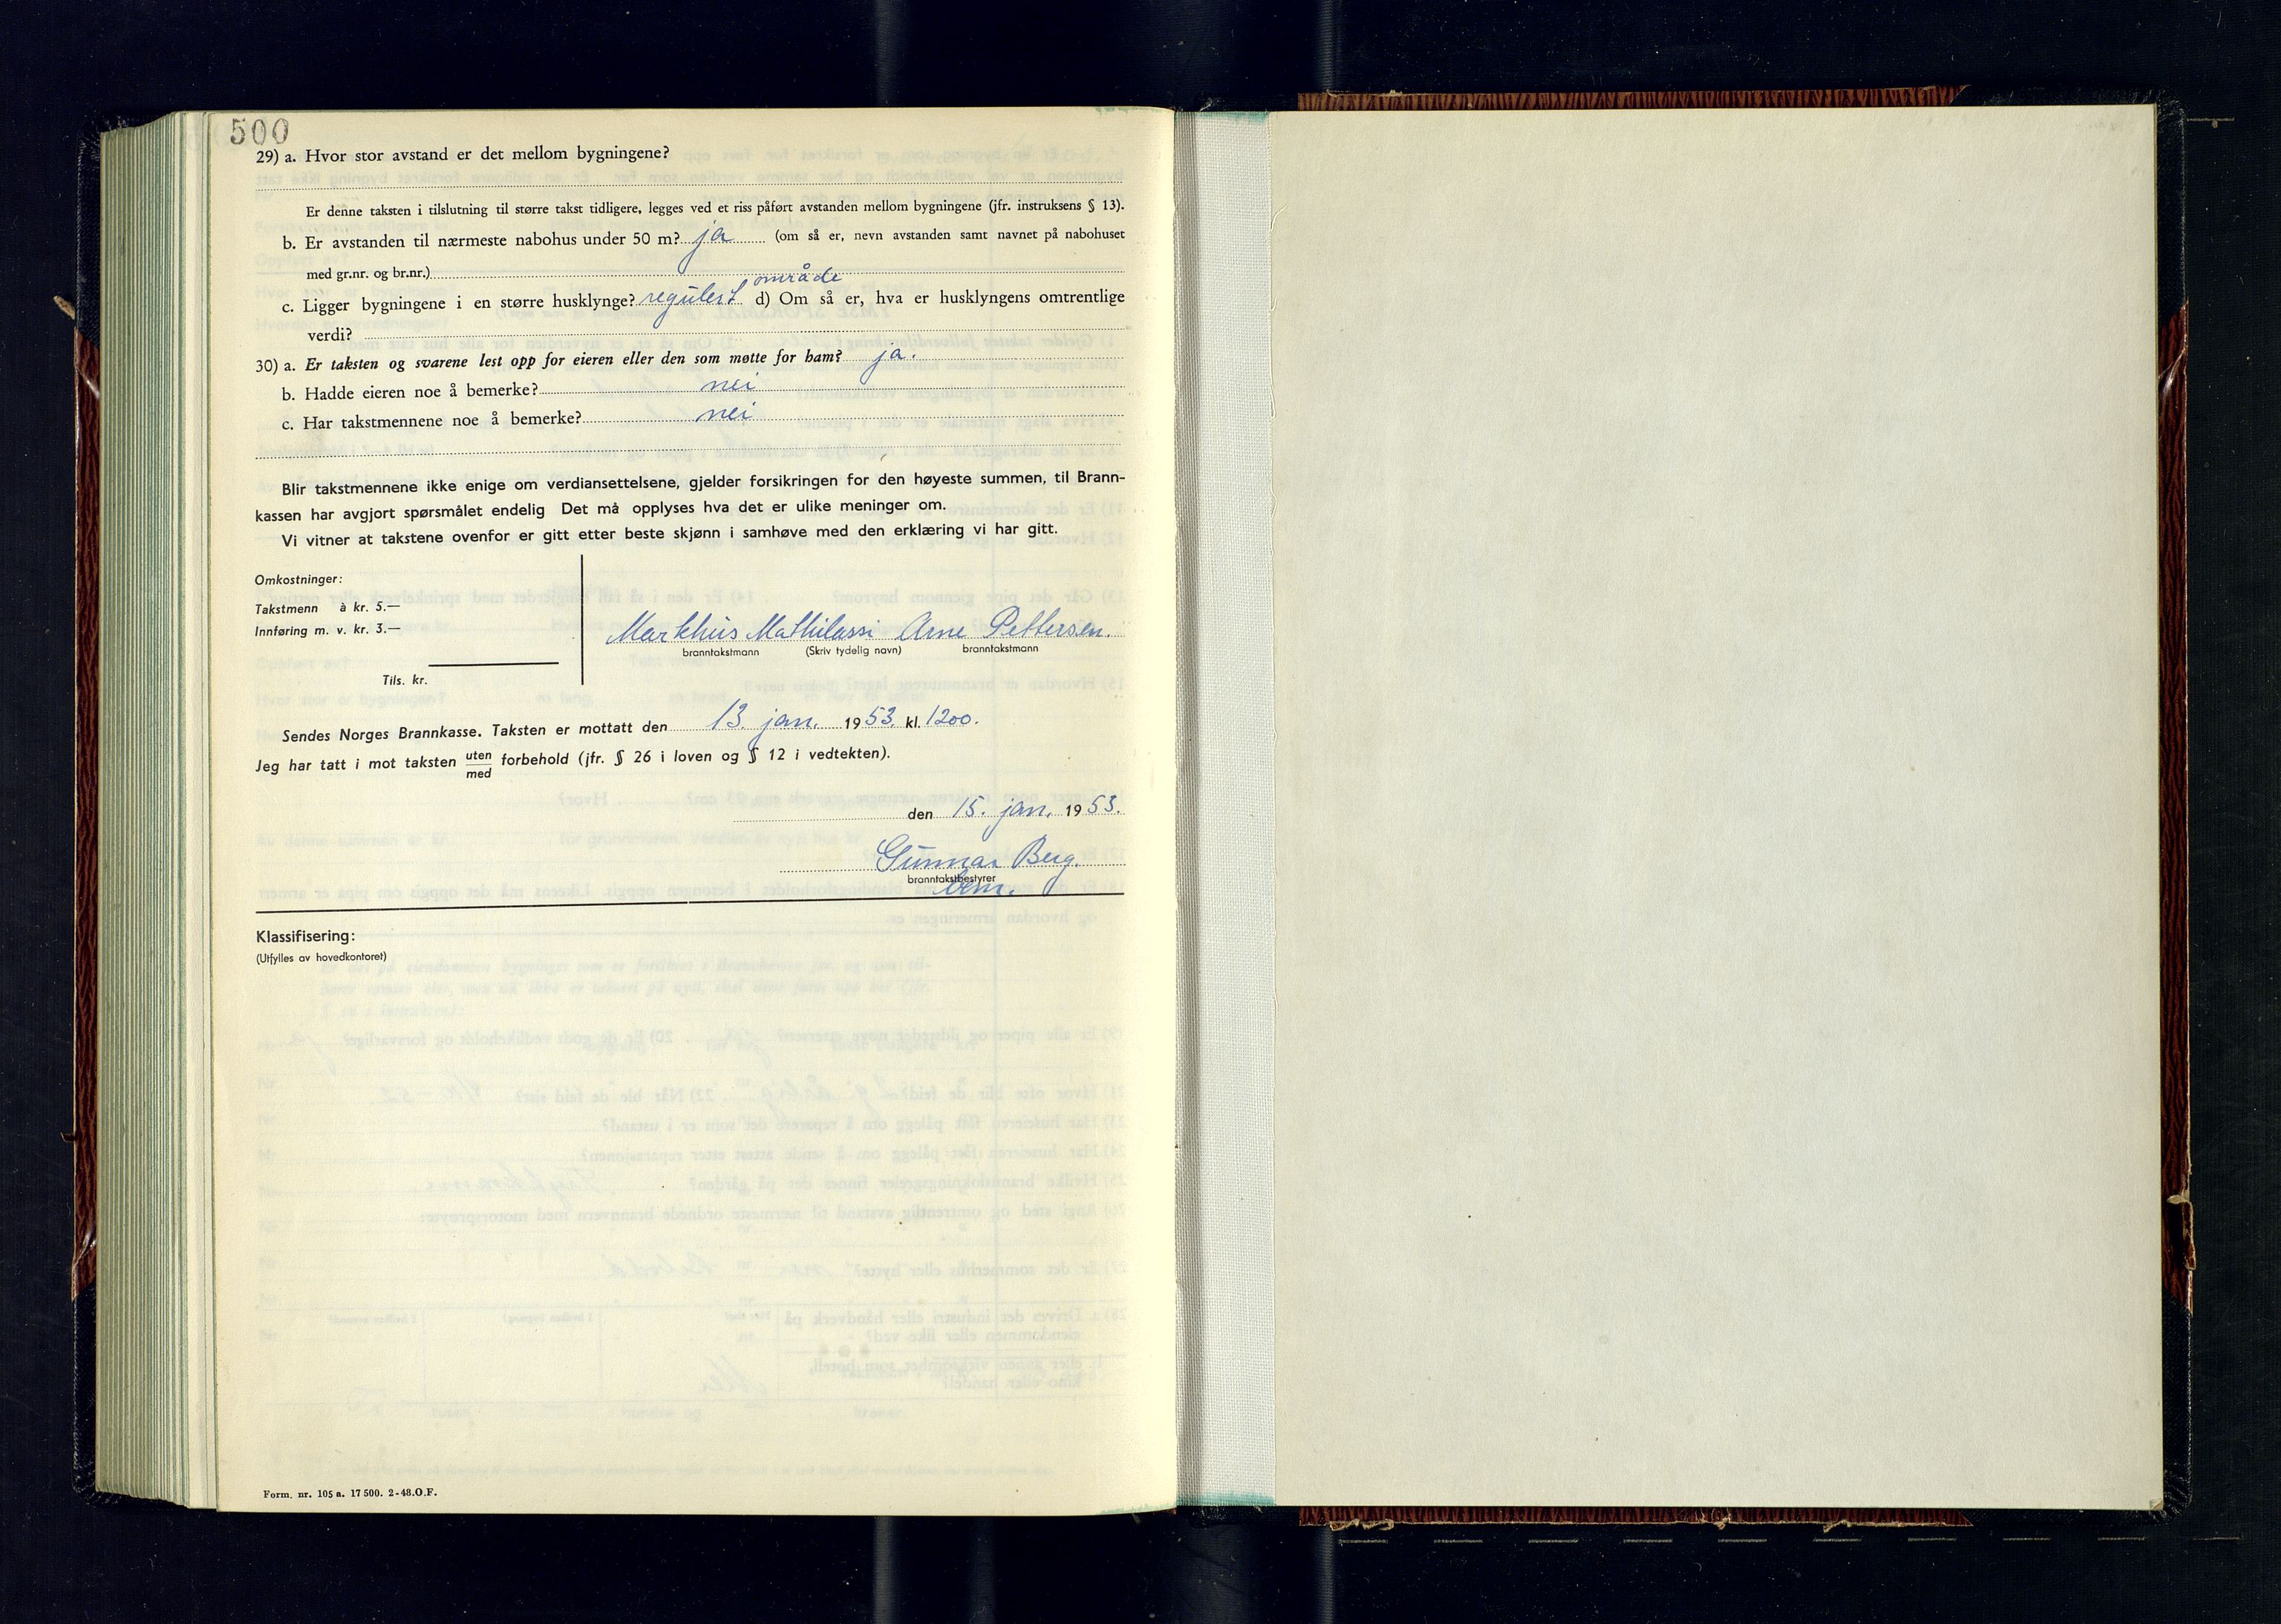 500
29) a. Hvor stor avstand er det mellom bygningene?
Er denne taksten i tilslutning til større takst tidligere, legges ved et riss påført avstanden mellom bygningene (jfr. instruksens § 13).
b. Er avstanden til nærmeste nabohus under 50 m? ja (om så er, nevn avstanden samt navnet på nabohuset
med gr.nr. og br.nr.)
område
c. Ligger bygningene i en større husklynge? regulert d) Om så er, hva er husklyngens omtrentlige
verdi?
30) a. Er taksten og svarene lest opp for eieren eller den som møtte for ham? ja.
b. Hadde eieren noe å bemerke? nei
c. Har takstmennene noe å bemerke? nei
Blir takstmennene ikke enige om verdiansettelsene, gjelder forsikringen for den høyeste summen, til Brann-
kassen har avgjort spørsmålet endelig Det må opplyses hva det er ulike meninger om.
Vi vitner at takstene ovenfor er gitt etter beste skjønn i samhøve med den erklæring vi har gitt.
Omkostninger:
Takstmenn à kr. 5.—
Innføring m. v. kr. 3.—
Tils. kr.
Markhus Mathilassi Arne Pettersen.
branntakstmann (Skriv tydelig navn) branntakstmann
Sendes Norges Brannkasse. Taksten er mottatt den 13. jan. 1953. kl. 1200.
Jeg har tatt i mot taksten uten
med forbehold (jfr. § 26 i loven og § 12 i vedtekten).
den 15. jan. 1953.
Gunnar Berg.
branntakstbestyrer
Klassifisering:
(Utfylles av hovedkontoret)
Form. nr. 105 a. 17 500. 2-48.O.F.